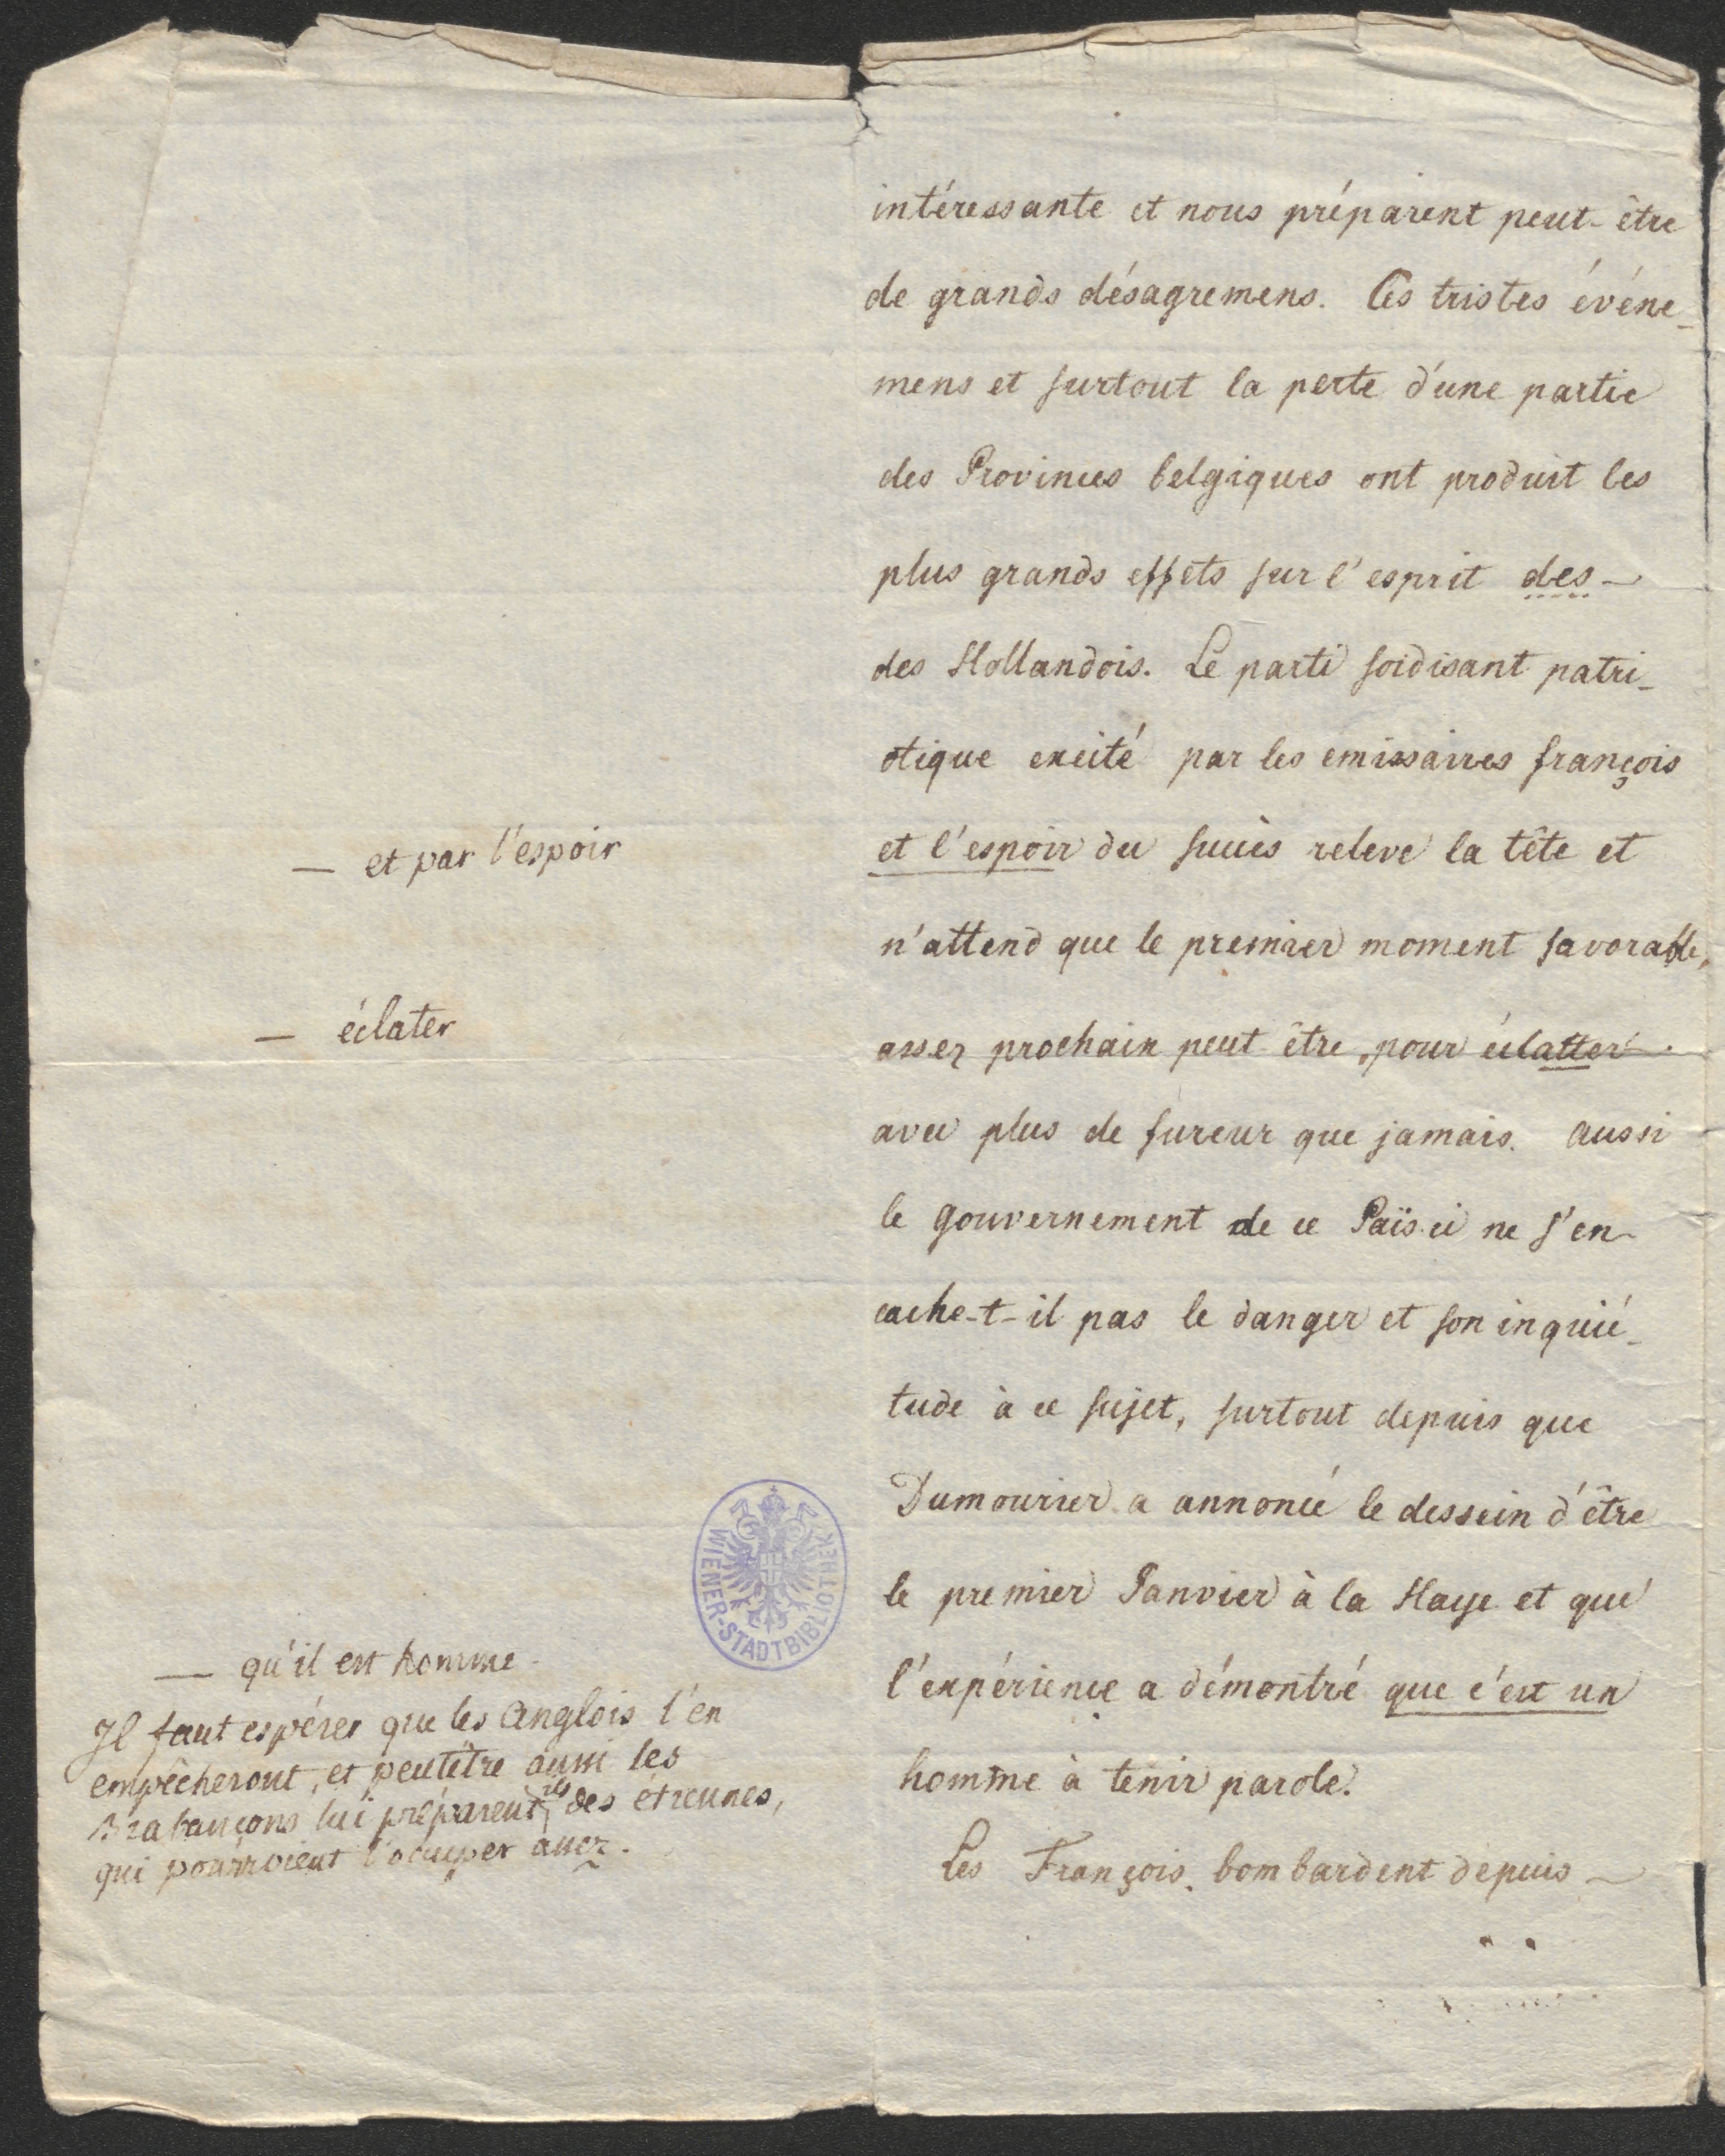 intéressante et nous préparent peut-être
de grands désagremens. Ces tristes événe-
mens et surtout la perte d'une partie
des Provinces belgiques ont produit les
plus grands effets sur l'esprit des
des Hollandois. Le parti soidisant patri-
otique excité par les emissaires françois
et l'espoir du succès releve la tête et
n'attend que le premier moment favorable,
assez prochain peut-être, pour éclatter
avec plus de fureur que jamais. Aussi
le gouvernement de ce Païs ci ne s'en
cache-t-il pas le danger et son inquié-
tude à ce sujet, surtout depuis que
Dumourier a annoncé le dessein d'être
le premier Janvier à la Haye et que
l'expérience a démontré que c'est un
homme à tenir parole.
Les François bombardent depuis
— et par l'espoir
— éclater
— qu'il est homme
Il faut espérer que les Anglois l'en
empêcheront, et peutêtre aussi les
Brabançons lui préparent-ils des étrennes,
qui pourroient l'occuper assez.
WIENER-STADTBIBLIOTHEK